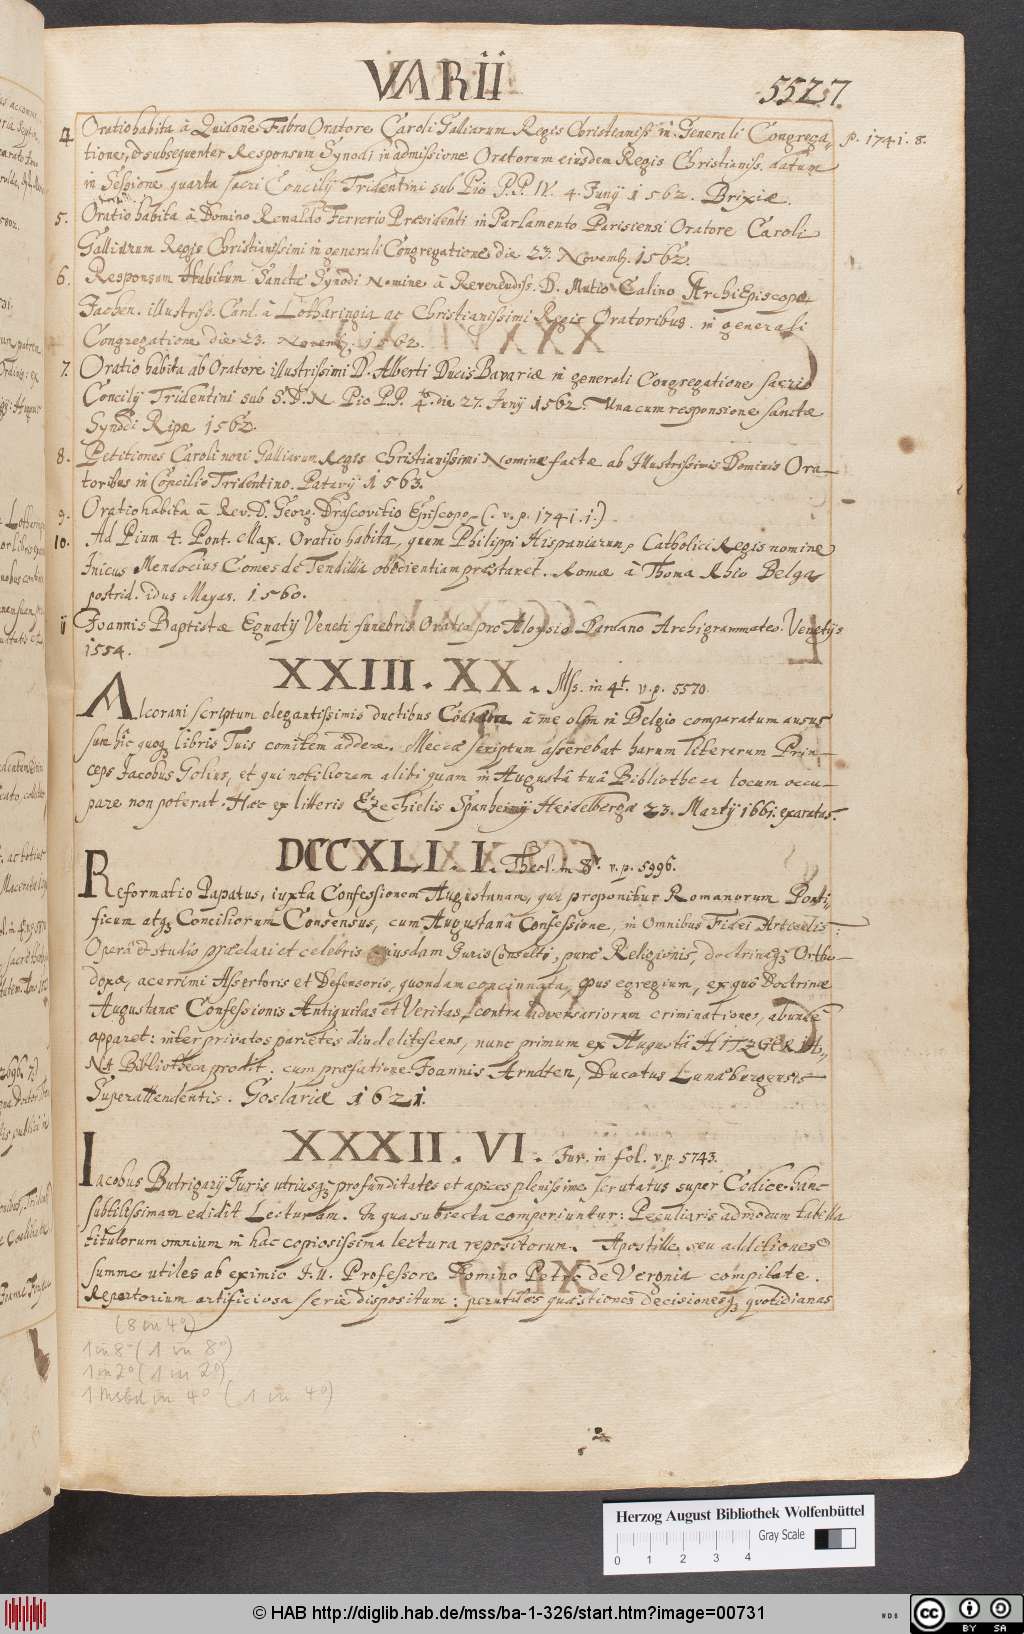 VARII
5527.
4. Oratio habita à Quidone Fabro Oratore Caroli Galliarum Regis Christianiss. in Generali Congrega- p. 1741. 8.
tione, & subsequenter Responsum Synodi in admissione Oratorum eiusdem Regis Christianiss. datum
in Sessione quarta sacri Concilij Tridentini sub Pio P.P. IV. 4. Junij 1562. Brixiæ.
5. Oratio habita à Domino Renaldo Ferrerio Præsidenti in Parlamento Parisiensi Oratore Caroli
Galliarum Regis Christianissimi in generali Congregatione die 23. Novemb. 1562.
6. Responsum Habitum Sanctæ Synodi Nomine à Reverendiss. D. Mutio Calino ArchiEpiscopo
Jachen. illustriss. Card. à Lotharingia ac Christianissimi Regis Oratoribus. in generali
Congregatione die 23. Novemb. 1562.
7. Oratio habita ab Oratore illustrissimi D. Alberti Ducis Bavariæ in generali Congregatione sacri
Concilij Tridentini sub S.D.N Pio P.P. 4to. die 27. Junij 1562. Una cum responsione sanctæ
Synodi Ripæ 1562.
8. Petitiones Caroli noni Galliarum Regis Christianissimi Nominæ factæ ab Illustrissimis Dominis Ora-
toribus in Concilio Tridentino. Patavij 1563.
9. Oratio habita à Rev. D. Georg. Drascovitio Episcopo (. v. p. 1741. 1.)
10. Ad Pium 4. Pont. Max. Oratio habita, quum Philippi Hispaniarum, Catholici Regis nomine
Inicus Mendocius Comes de Tendilla obedientiam præstaret. Romæ à Thoma Rhio Belga
postrid. idus Mayas. 1560.
11 Joannis Baptistæ Egnatij Veneti funebris Oratio pro Aloysio Dardano Archigrammateo. Venetijs
1554.
XXIII. XX. Mss. in 4t. v. p. 5570.
Alcorani scriptum elegantissimis ductibus Codicem à me olim in Belgio comparatum ausus
sum hic quoq; libris Tuis comitem addere. Meccæ scriptum asserebat harum literarum Prin-
ceps Jacobus Golius, et qui nobiliorem alibi quam in Augustâ tuâ Bibliotheca locum occu-
pare non poterat. Hæc ex litteris Ezechielis Spanhemij Heidelbergæ 23. Martij 1661. exaratas.
DCCXLI. I. Theol. in 8t. v. p. 5996.
Reformatio Papatus, iuxta Confessionem Augustanam, qui proponitur Romanorum Ponti-
ficum atq; Conciliorum Consensus, cum Augustanâ Confessione, in Omnibus Fidei Articulis:
Operâ et studio præclari et celebris cuiusdam Juris Consulti, puræ Religionis, doctrinaq; Ortho-
doxæ, acerrimi Assertoris et Defensoris, quondam concinnata, opus egregium, ex quô Doctrinæ
Augustanæ Confessionis Antiquitas et Veritas, contra adversariorum criminationes, abundè
apparet: inter privatos parietes diu delitescens, nunc primum ex Augusti HITZGERI,
Nt Bibliotheca prodit: cum præfatione Joannis Arndten, Ducatus Lunæburgensis
Superattendentis. Goslariæ 1621.
XXXII. VI. Jur. in fol. v. p. 5743.
Iacobus Butrigarij Juris utriusq; profunditates et apices plenissime scrutatus super Codice hanc
subtilissimam edidit Lecturam. In qua subiecta comperiuntur: Peculiaris admodum tabella
titulorum omnium in hac copiosissima lectura repositorum. Apostille seu additiones
summe utiles ab eximio I.U. Professore Domino Petro de Veronia compilate.
Repertorium artificiosa serie dispositum: perutiles quæstiones decisionesq; quotidianas
(8 in 4°)
1 in 8° (1 in 8°)
1 in 2° (1 in 2°)
1 Msbd in 4° (1 in 4°)
Herzog August Bibliothek Wolfenbüttel
Gray Scale
0 1 2 3 4
© HAB http://diglib.hab.de/mss/ba-1-326/start.htm?image=00731
cc BY SA